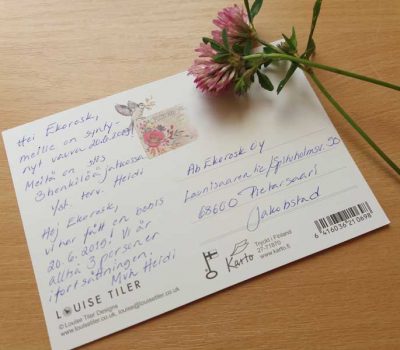 Hei Ekorosk,
meille on synty-
nyt vauva 20.6.2019.
Meitä on siis
3 henkilöä jatkossa.
Yst. terv. Heidi
Hej Ekorosk,
vi har fått en bebis
20.6.2019. Vi är
alltså 3 personer
i fortsättningen.
Mvh Heidi
Ab Ekorosk Oy
Launisaarentie/Spituholmsv. 50
68600 Pietarsaari
Jakobstad
LOUISE TILER
© Louise Tiler Designs
www.louisetiler.co.uk, louise@louisetiler.co.uk
Karto
Tryckt i Finland
27-71870
www.karto.fi
6 416036 210698